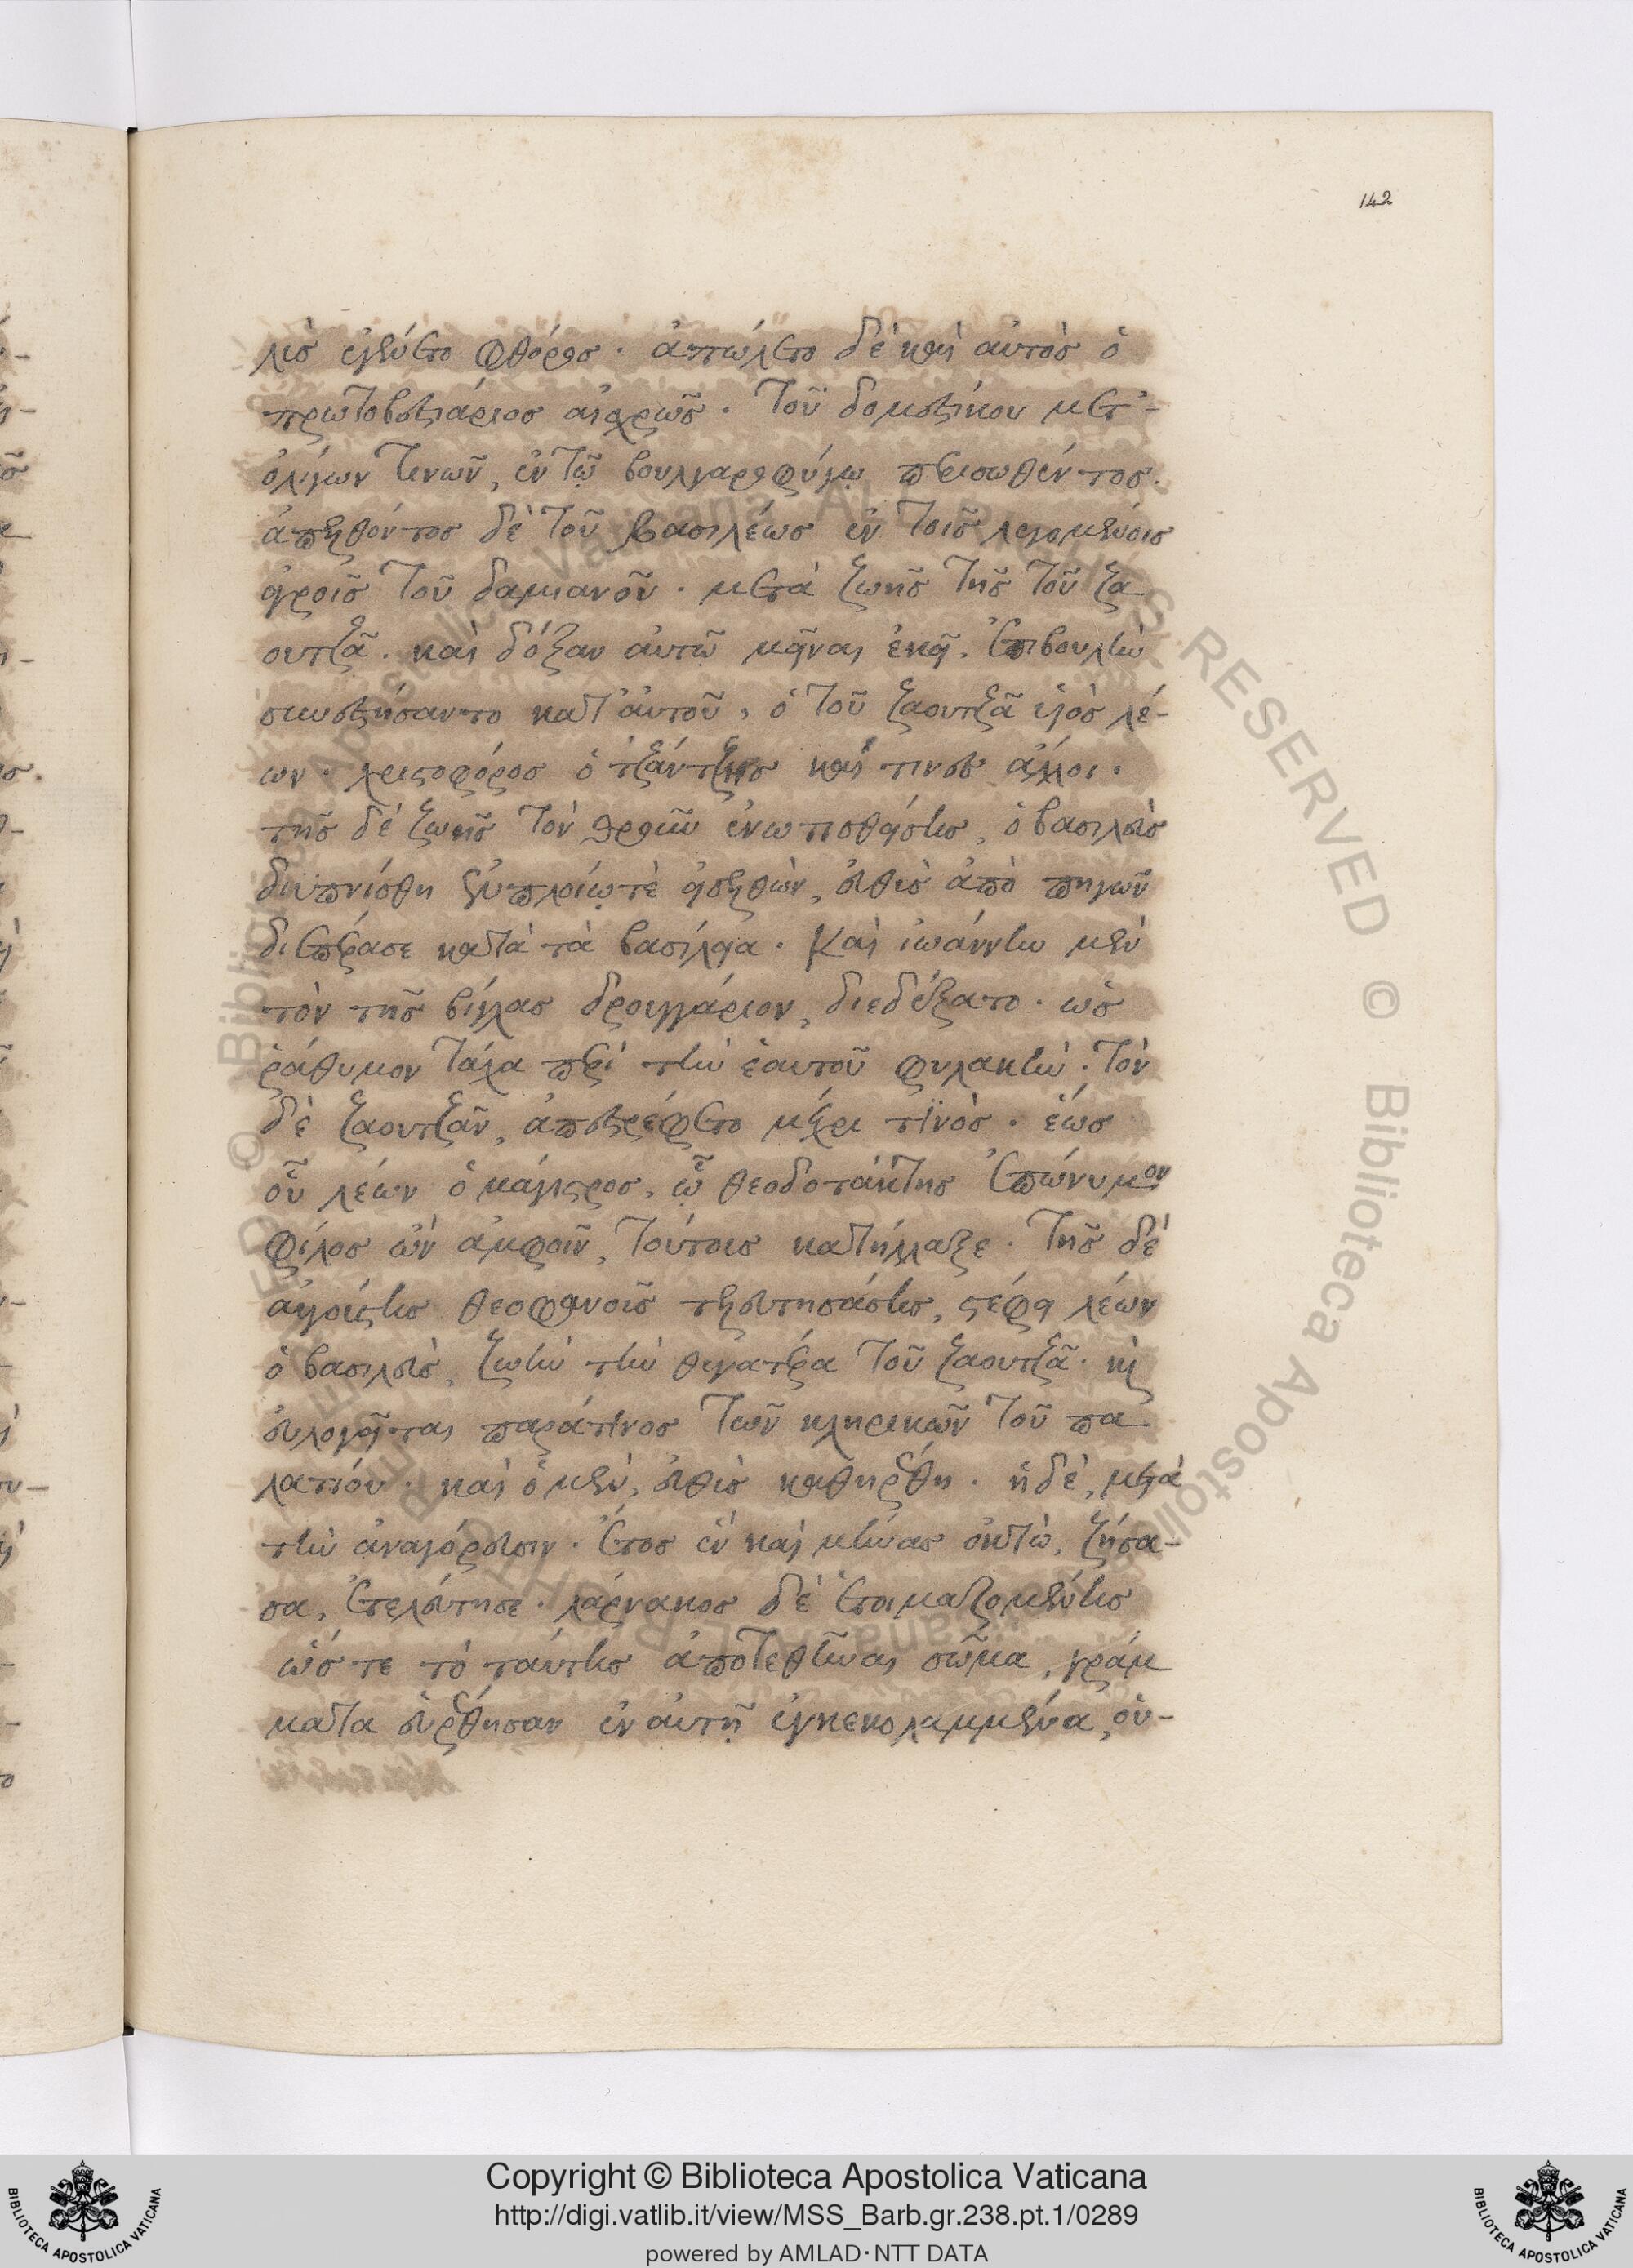 142
λὺς ἐγένετο φθόρος· ἀπώλετο δὲ καὶ αὐτὸς ὁ
πρωτοβεστιάριος αἰσχρῶς· τοῦ δομεστίκου μετ'-
ὀλίγων τινῶν, ἐν τῷ βουλγαροφύγῳ περισωθέντος.
ἀπελθόντος δὲ τοῦ βασιλέως ἐν τοῖς λεγομένοις
ἀγροῖς τοῦ δαμιανοῦ· μετὰ ζωῆς τῆς τοῦ ζα
ουτζᾶ. καὶ δόξαν αὐτῶ μεῖναι ἐκεῖ. ἐπιβουλὴν
συνεστήσαντο κατ' αὐτοῦ, ὁ τοῦ ζαουτζᾶ υἱὸς λέ-
ων· χριστοφόρος ὁ τζάντζης καὶ τινες ἄλλοι.
τῆς δὲ ζωῆς τὸν ἐνωτισθείσης, ὁ βασιλεὺς
διϋπνίσθη πλοίῳ τὲ εἰσελθὼν, εὐθὺς ἀπὸ πηγῶν
διεπέρασε κατὰ τὰ βασίλεια. Καὶ ἰωάννην μὲν
τὸν τῆς βίγλας δρουγγάριον, διεδέξατο· ὡς
ῥάθυμον τάχα περὶ τὴν ἑαυτοῦ φυλακὴν. τὸν
δὲ ζαουτζᾶν, ἀπεστρέφετο μέχρι τϊνὸς· ἕως
οὗ λέων ὁ μάγιστρος, ᾧ θεοδοτάκτης ἐπώνυμον
φίλος ὢν ἀμφοῖν, τούτοις κατήλλαξε. τῆς δὲ
αὐγούστης θεοφανοῦς τελευτησάσης, στέφει λέων
ὁ βασιλεὺς, ζωὴν τὴν θυγατέρα τοῦ ζαουτζᾶ. καὶ
εὐλογεῖται παράτινος τῶν κληρικῶν τοῦ πα
λατίου· καὶ ὁ μὲν, εὐθὺς καθηρέθη. ἡ δὲ, μετὰ
τὴν ἀναγόρευσιν· ἔτος ἓν καὶ μῆνας ὀκτὼ, ζήσα-
σα, ἐτελεύτησε. λάρνακος δὲ ἑτοιμαζομένης
ὥς τε τὸ ταύτης ἀποτεθῆναι σῶμα, γράμ
ματα εὑρέθησαν ἐν αὐτῇ ἐγκεκολαμμένα, οὑ-
Copyright © Biblioteca Apostolica Vaticana
http://digi.vatlib.it/view/MSS_Barb.gr.238.pt.1/0289
powered by AMLAD·NTT DATA
BIBLIOTECA APOSTOLICA VATICANA
BIBLIOTECA APOSTOLICA VATICANA